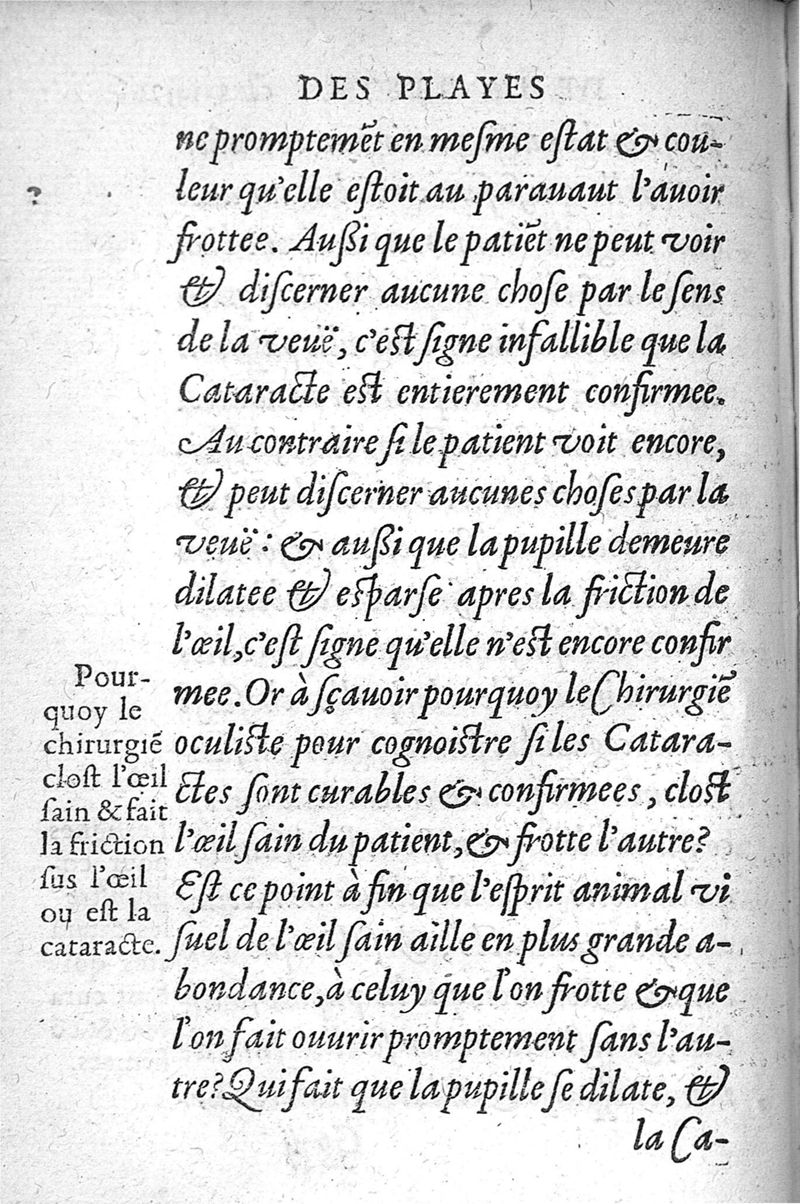 DES PLAYES
ne promptemẽt en meſme eſtat & cou-
leur qu'elle eſtoit au parauaut l'auoir
frottee. Außi que le patiẽt ne peut voir
& diſcerner aucune choſe par le ſens
de la veuë, c'eſt ſigne infallible que la
Cataracte eſt entierement confirmee.
Au contraire ſi le patient voit encore,
& peut diſcerner aucunes choſes par la
veuë : & außi que la pupille demeure
dilatee & eſparſe apres la friction de
l'œil, c'eſt ſigne qu'elle n'eſt encore confir
mee. Or à ſçauoir pourquoy le Chirurgiẽ
oculiſte pour cognoiſtre ſi les Catara-
ctes ſont curables & confirmees, cloſt
l'œil ſain du patient, & frotte l'autre?
Eſt ce point à fin que l'eſprit animal vi
ſuel de l'œil ſain aille en plus grande a-
bondance, à celuy que l'on frotte & que
l'on fait ouurir promptement ſans l'au-
tre? Qui fait que la pupille ſe dilate, &
la Ca-
Pour-
quoy le
chirurgiẽ
cloſt l'œil
ſain & fait
la friction
ſus l'œil
ou eſt la
cataracte.